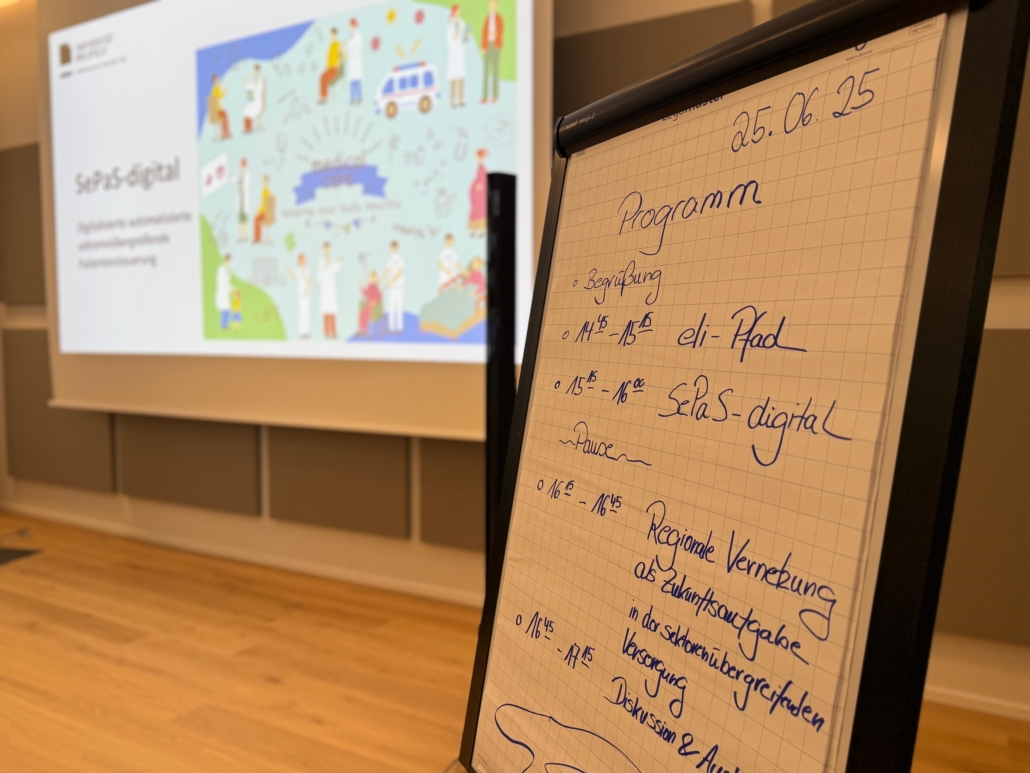 SePaS-digital
Digitalisierte automatisierte
sektorenübergreifende
Patientensteuerung
medical
care
25.06.25
Programm
Begrüßung
14 45 - 15 15 eli-Pfad
15 15 - 16 00 SePaS-digital
~Pause~
16 15 - 16 45 Regionale Vernetzung
als Zukunftsaufgabe
in der sektorenübergreifenden
Versorgung
16 45 - 17 15
Diskussion &